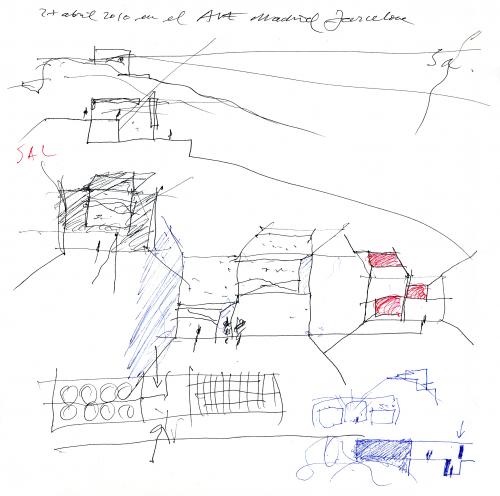 27 abril 2010 en el AVE Madrid Barcelona
Sal.
SAL